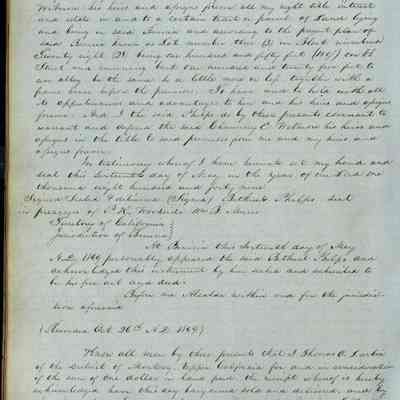 Wetmore his heirs and assigns forever all my right title interest
and estate in and to a certain tract or parcel of Land lying
and being in said Benicia and according to the present plan of
said Benicia known as Lot number three (3) in Block numbered
Twenty eight (28) being one hundred and fifty feet (150ft) on
Street and running back one hundred and twenty five feet to
an alley be the same a little more or less together with a
frame house upon the premises. To have and to hold with all
its appurtenances and advantages to him and his heirs and assigns
forever. And I the said Phelps do by these presents covenant to
warrant and defend the said Chauncey C. Wetmore his heirs and
assigns in the title to said premises from me and my heirs and
assigns forever.
In testimony whereof I have hereunto set my hand and
seal this Sixteenth day of May in the year of our Lord one
thousand eight hundred and forty nine
Signed Sealed & delivered (Signed) Bethuel Phelps seal
in presence of
Territory of California
Jurisdiction of Benicia
At Benicia this Sixteenth day of May
A.D. 1849 personally appeared the said Bethuel Phelps and
acknowledged this instrument by him sealed and submitted to
be his free act and deed.
Before me Alcalde within and for the jurisdic-
tion aforesaid
(Recorded Oct. 26th A.D. 1849)
Know all men by these presents that I Thomas O. Larkin
of the district of Monterey, Upper California for and in consideration
of the sum of one dollar in hand paid the receipt whereof is hereby
acknowledged have this day bargained sold and delivered, and by